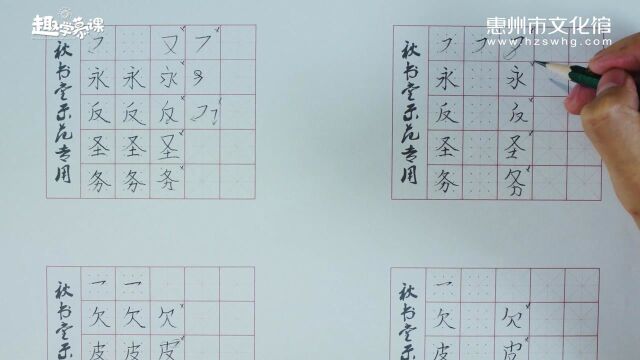 趣学慕课
惠州市文化馆
www.hzswhg.com
秋书堂示范专用
又
永 永 永
反 反 反
圣 圣 圣
务 务 务
秋书堂示范专用
永
反
圣
务
秋书堂示
欠 欠 欠
皮 皮 皮
秋书堂示
欠
皮